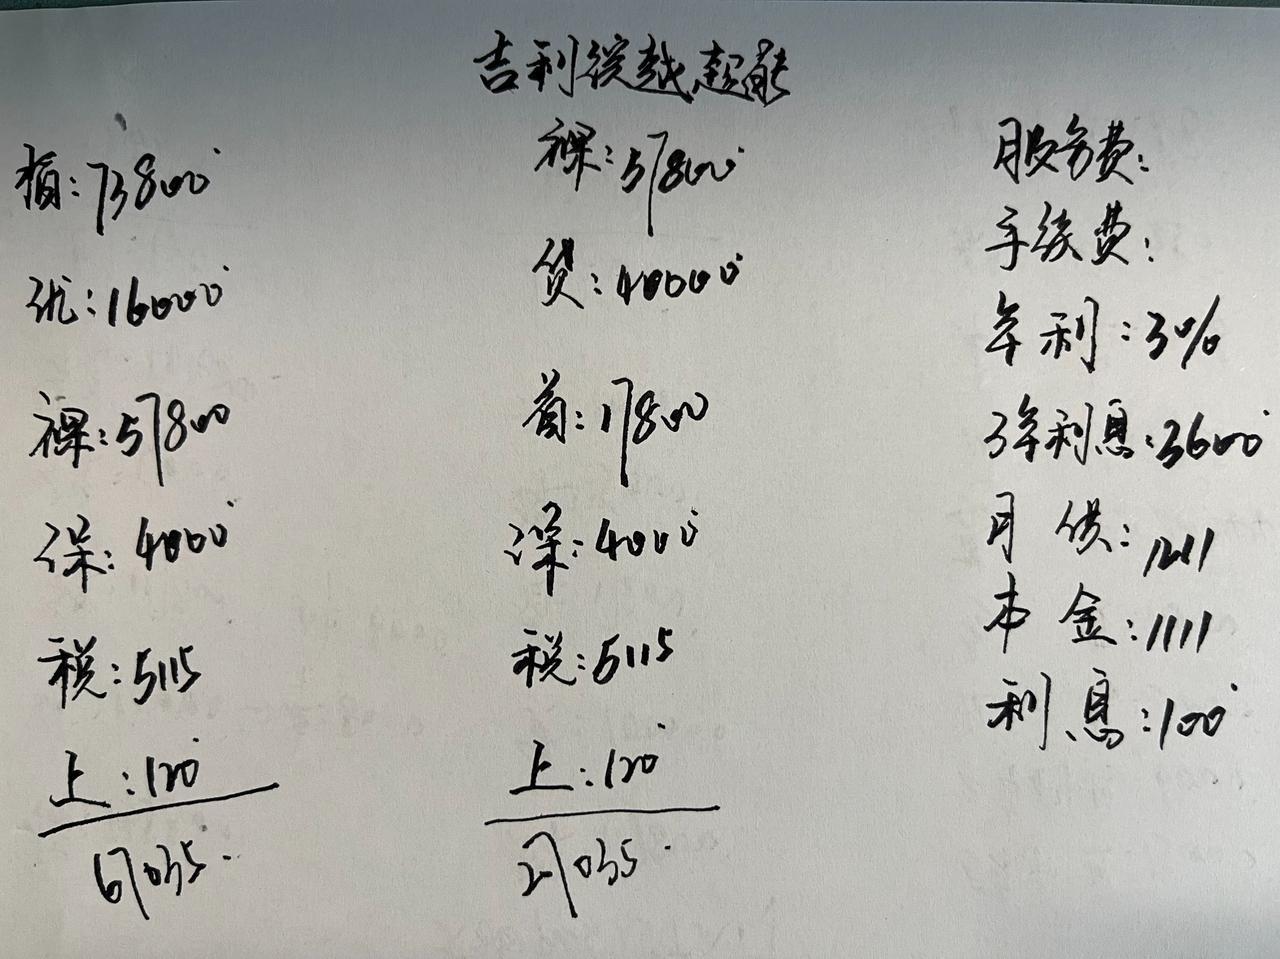 吉利缤越起航
指:73800
优:16000
裸:57800
保:4000
税:5115
上:120
67035.
裸:57800
贷:40000
首:17800
保:4000
税:5115
上:120
27035.
服务费:
手续费:
年利:3%
3年利息:3600
月供:1211
本金:1111
利息:100